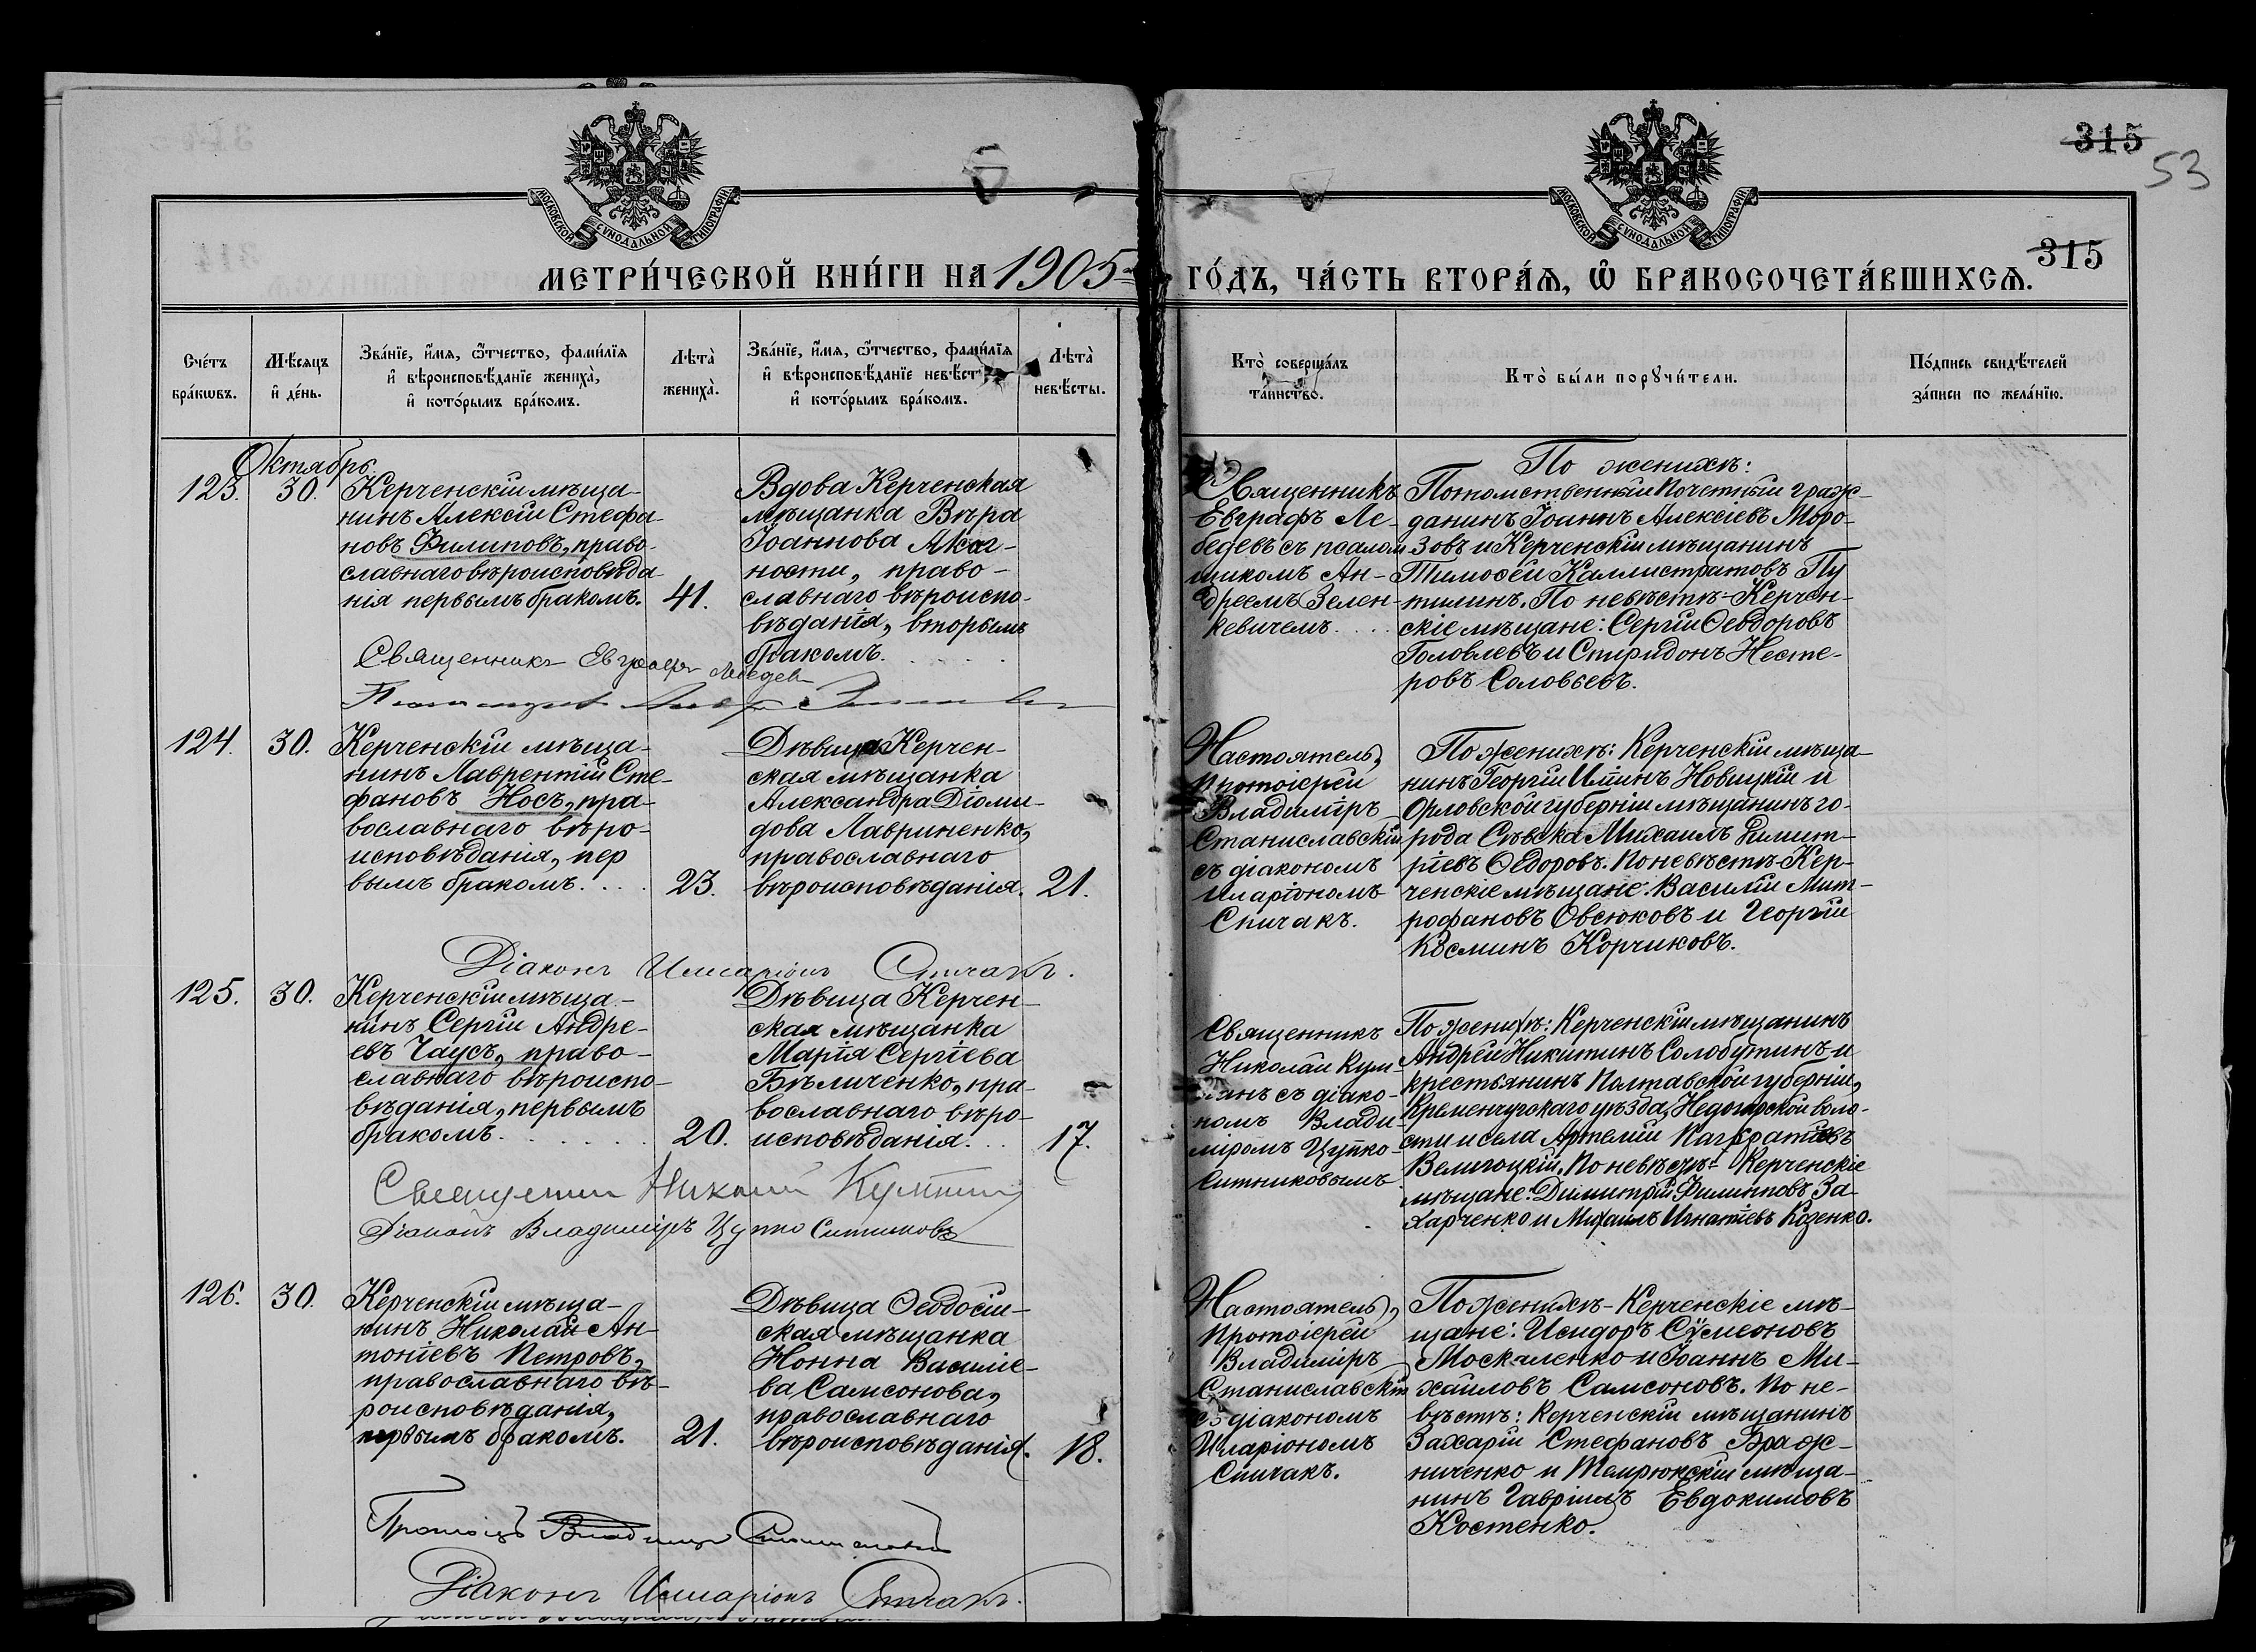 315
53
315
МОСКОВСКОЙ СУНОДАЛЬНОЙ ТИПОГРАФІИ
МОСКОВСКОЙ СУНОДАЛЬНОЙ ТИПОГРАФІИ
МЕТРИ́ЧЕСКОЙ КНИ́ГИ НА 1905 ГО́ДЪ, ЧА́СТЬ ВТОРА́Ѧ, Ѽ БРАКОСОЧЕТА́ВШИХСѦ.
Сче́тъ
бра́кѡвъ.
Мѣ́сѧцъ
и҆ де́нь.
Зва́нїе, и҆́мѧ, ѻ҆́тчество, фами́лїѧ
и҆ вѣроисповѣ́данїе жениха̀,
и҆ кото́рымъ бра́комъ.
Лѣта̀
жениха̀.
Зва́нїе, и҆́мѧ, ѻ҆́тчество, фами́лїѧ
и҆ вѣроисповѣ́данїе невѣ́ст
и҆ кото́рымъ бра́комъ.
Лѣта̀
невѣ́сты.
Кто̀ соверша́лъ
та́инство.
Кто̀ бы́ли порꙋчи́тели.
По́дпись свидѣ́телей
за́писи по жела́нїю.
Октябрь.
123.
30.
Керченскій мѣща-
нинъ Алексій Стефа-
новъ Филиповъ, право-
славнаго вѣроисповѣда-
нія первымъ бракомъ.
41.
Вдова Керченская
мѣщанка Вѣра
Іоаннова
ности, право-
славнаго вѣроиспо-
вѣданія, вторымъ
бракомъ.
Священникъ
Евграфъ Ле-
бедевъ съ псалом
щикомъ Ан-
дреемъ Зелен-
кевичемъ....
По женихѣ:
Потомственный Почетный граж-
данинъ Іоаннъ Алексіевъ Моро-
зовъ и Керченскій мѣщанинъ
Тимоѳей Каллистратовъ Пу
тилинъ. По невѣстѣ - Керчен-
скіе мѣщане: Сергій Ѳеодоровъ
Головлевъ и Спиридонъ Несте-
ровъ Соловьевъ.
Священникъ Евграфъ Лебедевъ
124.
30.
Керченскій мѣща-
нинъ Лаврентій Сте-
фановъ Носъ, пра-
вославнаго вѣро-
исповѣданія, пер
вымъ бракомъ....
23.
Дѣвица Керчен-
ская мѣщанка
Александра Діоми-
дова Лавриненко,
православнаго
вѣроисповѣданія.
21.
Настоятель,
Протоіерей
Владиміръ
Станиславскій
съ діакономъ
Иларіономъ
Спичакъ.
По женихѣ: Керченскій мѣща-
нинъ Георгій Иліинъ Новицкій и
Орловской губерніи мѣщанинъ го-
рода Сѣвска Михаилъ Димит-
ріевъ Ѳедоровъ. По невѣстѣ - Кер-
ченскіе мѣщане: Василій Мит-
рофановъ Овсюковъ и Георгій
Косминъ Корчиковъ.
Діаконъ Иларіонъ Спичакъ.
125.
30.
Керченскій мѣща-
нинъ Сергій Андре-
евъ Чаусъ, право-
славнаго вѣроиспо-
вѣданія, первымъ
бракомъ.......
20.
Дѣвица Керчен-
ская мѣщанка
Марія Сергіева
Бѣличенко, пра-
вославнаго вѣро-
исповѣданія...
17.
Священникъ
Николай Кум-
панъ съ діако-
номъ Влади-
міромъ Цупко-
Ситниковымъ
По женихѣ: Керченскій мѣщанинъ
Андрей Никитинъ Солобутинъ и
крестьянинъ Полтавской губерніи,
Кременчугскаго уѣзда, Недогарской воло-
сти и села Артемій Панкратіевъ
Велигоцкій. По невѣстѣ - Керченскіе
мѣщане: Димитрій Филипповъ За-
харченко и Михаилъ Игнатіевъ Козенко.
Священникъ Николай Кумпанъ
Діаконъ Владиміръ Цупко Ситниковъ
126.
30.
Керченскій мѣща-
нинъ Николай Ан-
тоніевъ Петровъ,
православнаго вѣ-
роисповѣданія,
первымъ бракомъ.
21.
Дѣвица Ѳеодосій-
ская мѣщанка
Нонна Василіе-
ва Самсонова,
православнаго
вѣроисповѣданія.
18.
Настоятель,
Протоіерей
Владиміръ
Станиславскій
съ діакономъ
Иларіономъ
Спичакъ.
По женихѣ - Керченскіе мѣ-
щане: Исидоръ Сѵмеоновъ
Москаленко и Іоаннъ Ми-
хаиловъ Самсоновъ. По не-
вѣстѣ: Керченскій мѣщанинъ
Захарій Стефановъ Браж-
ниченко и Темрюкскій мѣща-
нинъ Гавріилъ Евдокимовъ
Костенко.
Владиміръ Станиславскій
Діаконъ Иларіонъ Спичакъ.